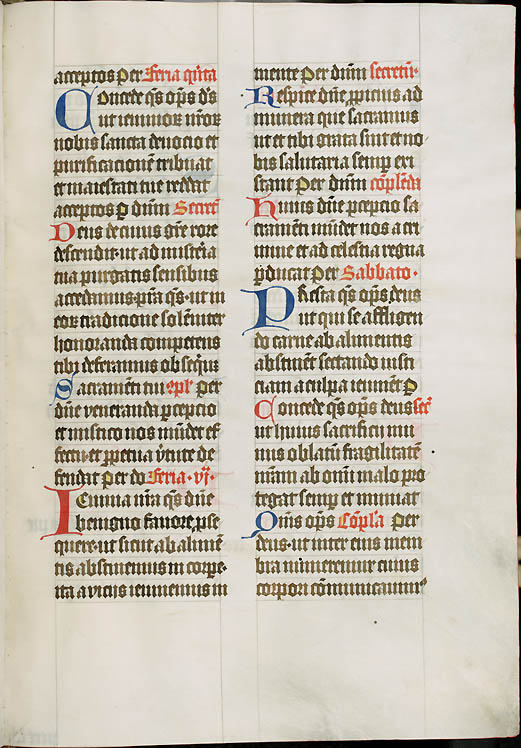 acceptos per Feria qnta
Concede qs ops ds
ut ieiunior nror
nobis sancta deuocio et
purificacionē tribuat
et maiestati tue reddat
acceptos p dnm Secret
Deus de cuius gre rore
descendit ut ad misteria
tua purgatis sensibus
accedamus pta qs ut in
eor tradicione solēniter
honoranda competens
tibi deferamus obsequi
Sacramēti tui 9pl per
dne veneranda pcepcio
et mistico nos mudet ef
fectu et ppetua vtute de
fendat per do Feria vi
Ieiunia nra qs dne
benigno fauore pse
quere ut sicut ab alimē
tis abstinemus in corpe
ita a vicijs ieiunemus in
mente Per dnm secretu
Respice dne ppicius ad
munera que sacramus
ut et tibi grata sint et no
bis salutaria semp exi
stant per dnm cōplēda
Huius dne pcepcio sa
cramēti mudet nos a cri
mine et ad celestia regna
pducat per Sabbato
Presta qs ops deus
ut qui se affligen
do carne ab alimentis
abstinēt sectando iusti
ciam a culpa ieiunēt p
Concede qs ops deus secr
ut huius sacrificij mu
nus oblatu fragilitatē
nram ab omi malo pro
tegat semp et muniat
Omis ops Cōpla per
deus ut inter eius mem
bra numeremur cuius
corpori cōmunicamus